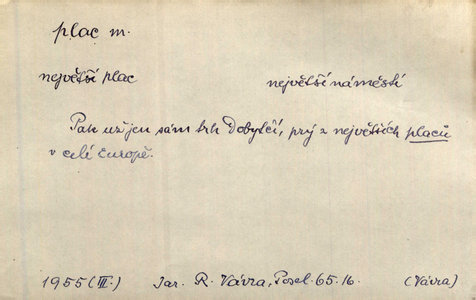 plac m.
největší plac największí náměstí
Pak už jen sám trh Dobytčí, prý z největších placů
v celé Europě.
1955 (III.) Jar. R. Vávra, Posel. 65.16. (Vávra)